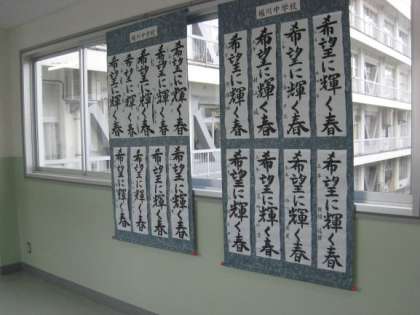 桶川中学校
希望に輝く春
希望に輝く春
希望に輝く春
希望に輝く春
希望に輝く春
希望に輝く春
希望に輝く春
希望に輝く春
希望に輝く春
桶川中学校
希望に輝く春
希望に輝く春
希望に輝く春
希望に輝く春
希望に輝く春
希望に輝く春
希望に輝く春
希望に輝く春